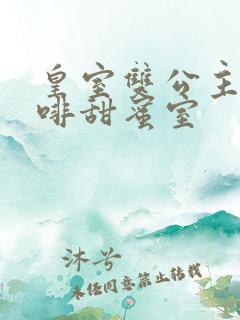 皇室雙公主
啡甜蜜室
沐兮
未经同意禁止转载